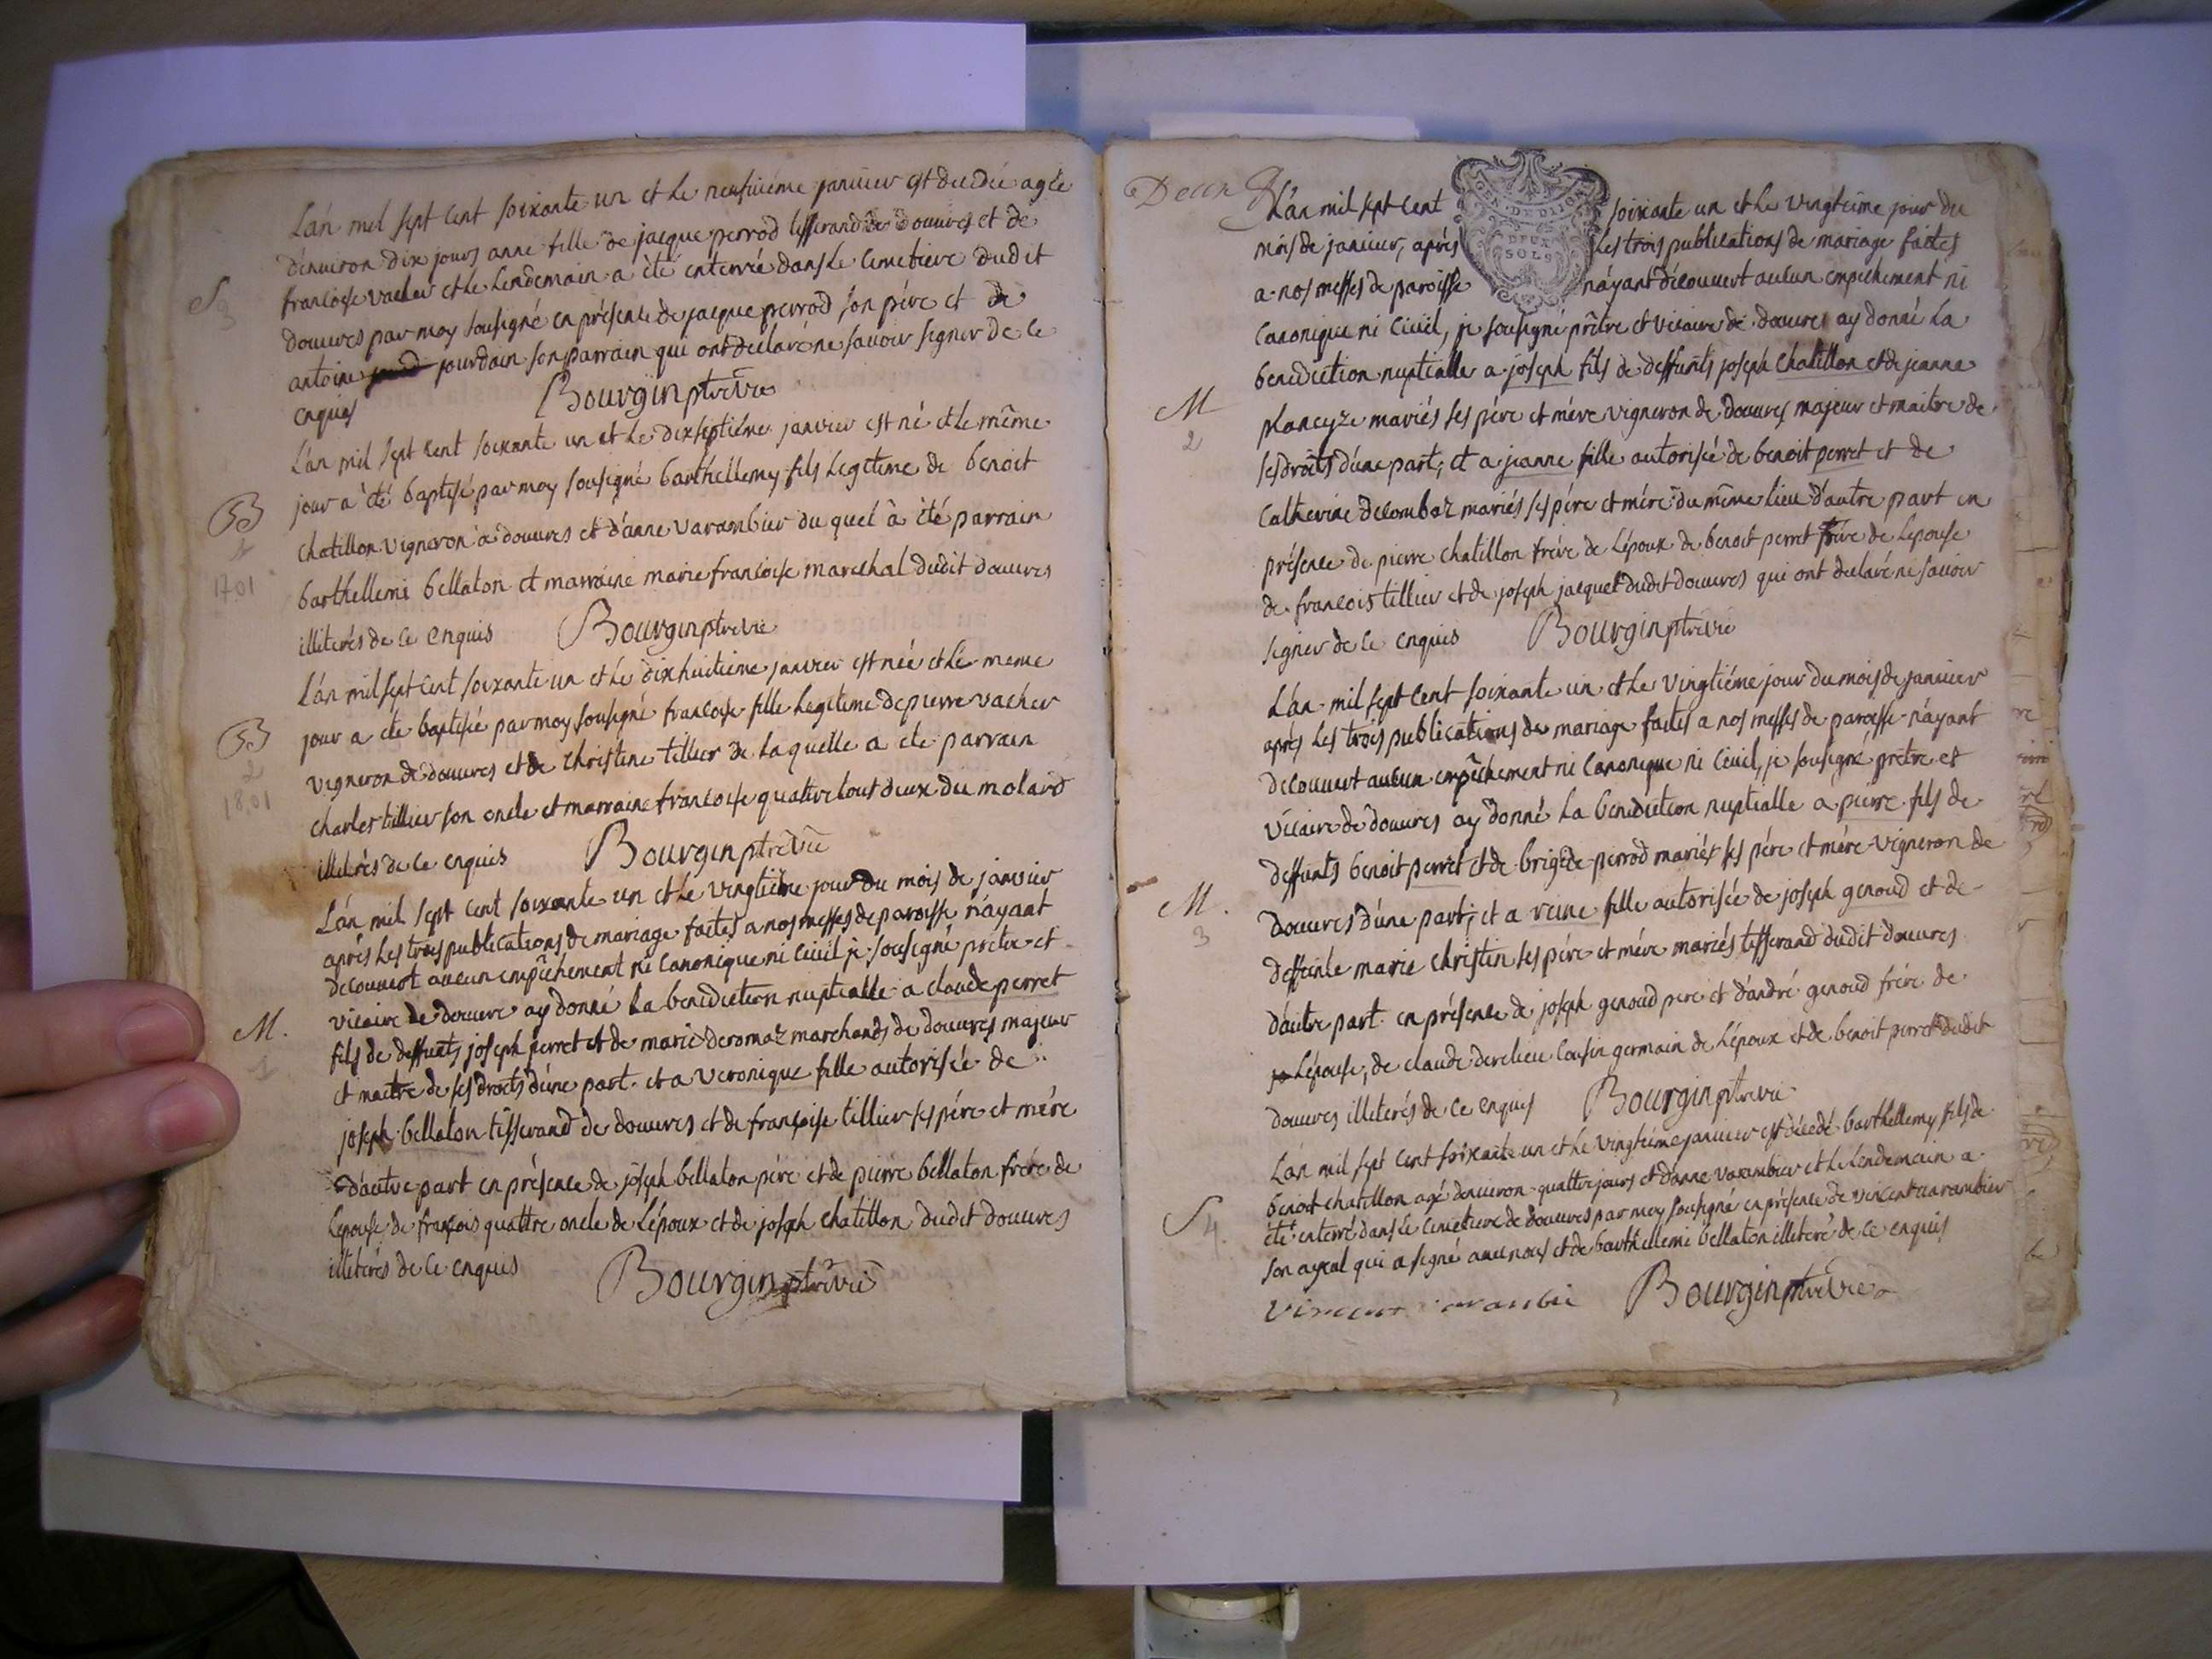 S
3
L'an mil sept cent soixante un et le neufvieme janvier est decedée agée
d'environ dix jours anne fille de jacque perrod tisserand de douvres et de
francoise vacher et le lendemain a été enterrée dans le cimetiere dudit
douvres par moy sousigné en présence de jacque perrod son pére et de
antoine jourdain son parrain qui ont declaré ne savoir signer de ce
enquis Bourgin ptre vic
B
1
17.01
L'an mil sept cent soixante un et le dixseptiéme janvier est né et le même
jour a été baptisé par moy sousigné barthellemy fils legitime de benoit
chatillon vigneron à douvres et d'anne varambier du quel à été parrain
barthellemi bellaton et marraine marie francoise marechal dudit douvres
illiterés de ce enquis Bourgin ptre vic
B
2
18.01
L'án mil sept cent soixante un et le dixhuitieme janvier est née et le meme
jour a été baptisée par moy sousigné francoise fille legitime de pierre vacher
vigneron de douvres et de christine tillier de laquelle a été parrain
charles tillier son oncle et marraine francoise quattre tout deux du molard
illiterés de ce enquis Bourgin ptre vic
M.
1
L'án mil sept cent soixante un et le vingtiéme jour du mois de janvier
aprés les trois publications de mariage faites a nos messes de paroisse n'áyant
decouvert aucun empêchement ni canonique ni civil je sousigné pretre et
vicaire de douvre ay donné la benediction nuptialle a claude perret
fils de deffunts joseph perret et de marie deromaz marchands de douvres majeur
et maitre de ses droits d'une part et a veronique fille autorisée de
joseph bellaton tisserand de douvres et de françoise tillier ses pére et mére
d'autre part en présence de joseph bellaton pére et de pierre bellaton frére de
lepouse de françois quattre oncle de l'époux et de joseph chatillon dudit douvres
illiterés de ce enquis Bourgin ptre vic
GEN. DE DIJON
DEUX
SOLS
M
2
L'án mil sept cent soixante un et le vingtiéme jour du
mois de janvier, aprés les trois publications de mariage faites
a nos messes de paroisse n'áyant découvert aucun empêchement ni
canonique ni civil, je sousigné prêtre et vicaire de douvres ay donné la
benediction nuptialle a joseph fils de deffunts joseph chatillon et de jeanne
planeyze mariés ses pére et mére vigneron de douvres majeur et maitre de
ses droits d'une part; et a jeanne fille autorisée de benoit perret et de
catherine decombaz mariés ses pére et mére du même lieu d'autre part en
présence de pierre chatillon frére de l'époux de benoit perret frére de l'epouse
de francois tillier et de joseph jacquet dudit douvres qui ont declaré ne savoir
signer de ce enquis Bourgin ptre vic
M.
3
L'án mil sept cent soixante un et le vingtiéme jour du mois de janvier
aprés les trois publications de mariage faites a nos messes de paroisse n'áyant
découvert aucun empêchement ni canonique ni civil, je sousigné prêtre et
vicaire de douvres ay donné la benediction nuptialle a pierre fils de
deffunts benoit perret et de brigide perrod mariés ses pére et mére vigneron de
douvres d'une part; et a reine fille autorisée de joseph genoud et de
deffunte marie christin ses pére et mére mariés tisserand dudit douvres
d'autre part en présence de joseph genoud pere et d'andré genoud frére de
l'épouse, de claude derelieu cousin germain de l'époux et de benoit perret dudit
douvres illiterés de ce enquis Bourgin ptre vic
S
4.
L'án mil sept cent soixante un et le vingtiéme janvier est décedé barthellemy fils de
benoit chatillon agé denviron quattre jours et d'anne varambier et le lendemain a
été enterré dans le cimetiere de douvres par moy sousigné en présence de vincent varambier
son ayeul qui a signé avec nous et de barthellemi bellaton illiteré de ce enquis
Bourgin ptre vic